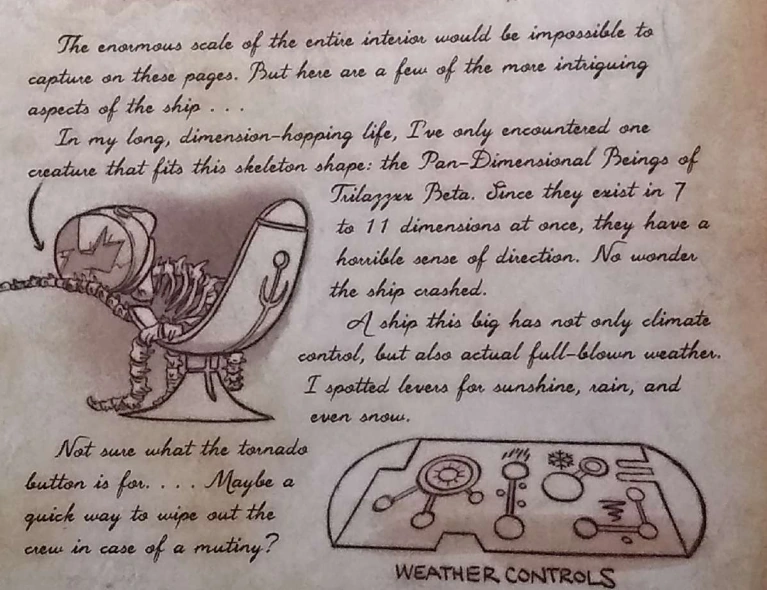 The enormous scale of the entire interior would be impossible to
capture on these pages. But here are a few of the more intriguing
aspects of the ship . . .
In my long, dimension-hopping life, I've only encountered one
creature that fits this skeleton shape: the Pan-Dimensional Beings of
Trilazzxx Beta. Since they exist in 7
to 11 dimensions at once, they have a
horrible sense of direction. No wonder
the ship crashed.
A ship this big has not only climate
control, but also actual full-blown weather.
I spotted levers for sunshine, rain, and
even snow.
Not sure what the tornado
button is for. . . . Maybe a
quick way to wipe out the
crew in case of a mutiny?
WEATHER CONTROLS